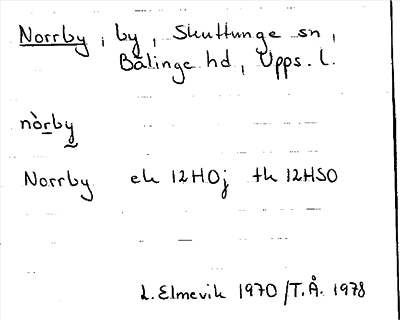 Norrby, by, Skuttunge sn,
Bälinge hd, Upps. l.
nòrby
Norrby ek 12H0j tk 12HSO
L. Elmevik 1970 / T.Å. 1978